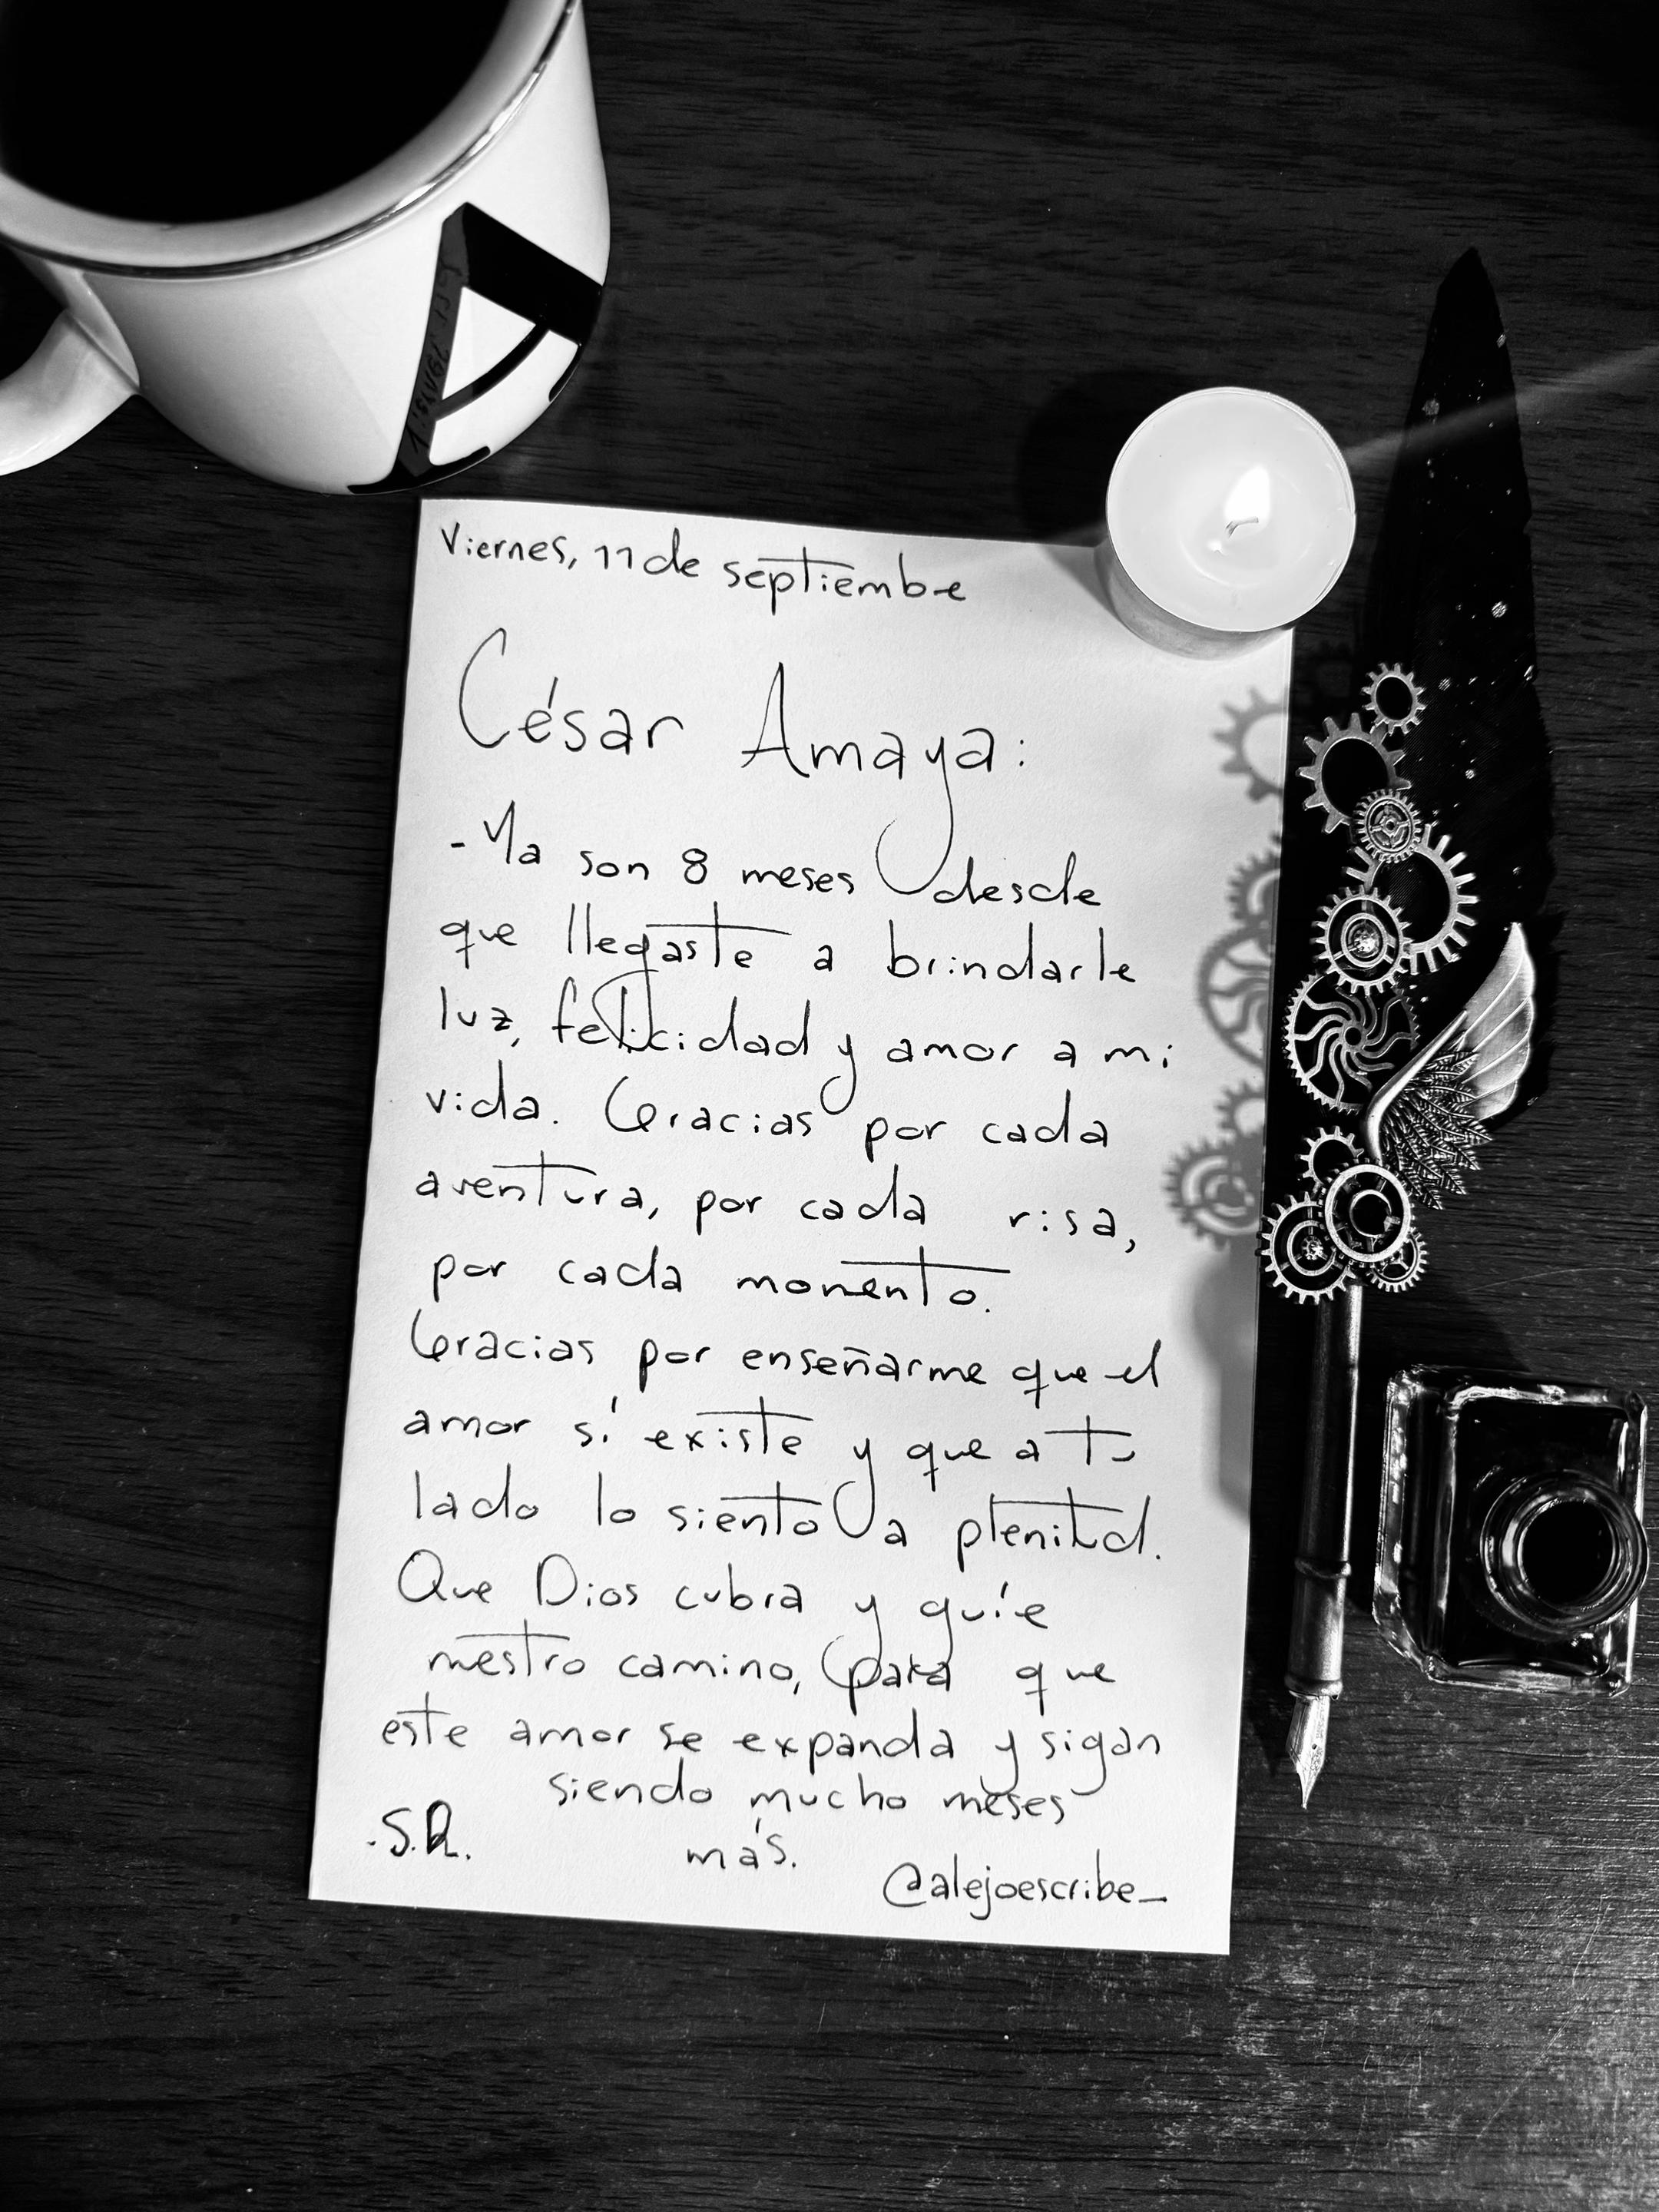 Viernes, 11 de septiembre
César Amaya:
- Ya son 8 meses desde
que llegaste a brindarle
luz, felicidad y amor a mi
vida. Gracias por cada
aventura, por cada risa,
por cada momento.
Gracias por enseñarme que el
amor sí existe y que a tu
lado lo siento a plenitud.
Que Dios cubra y guíe
nuestro camino, para que
este amor se expanda y sigan
siendo mucho meses
más.
.S.R.
@alejoescribe_